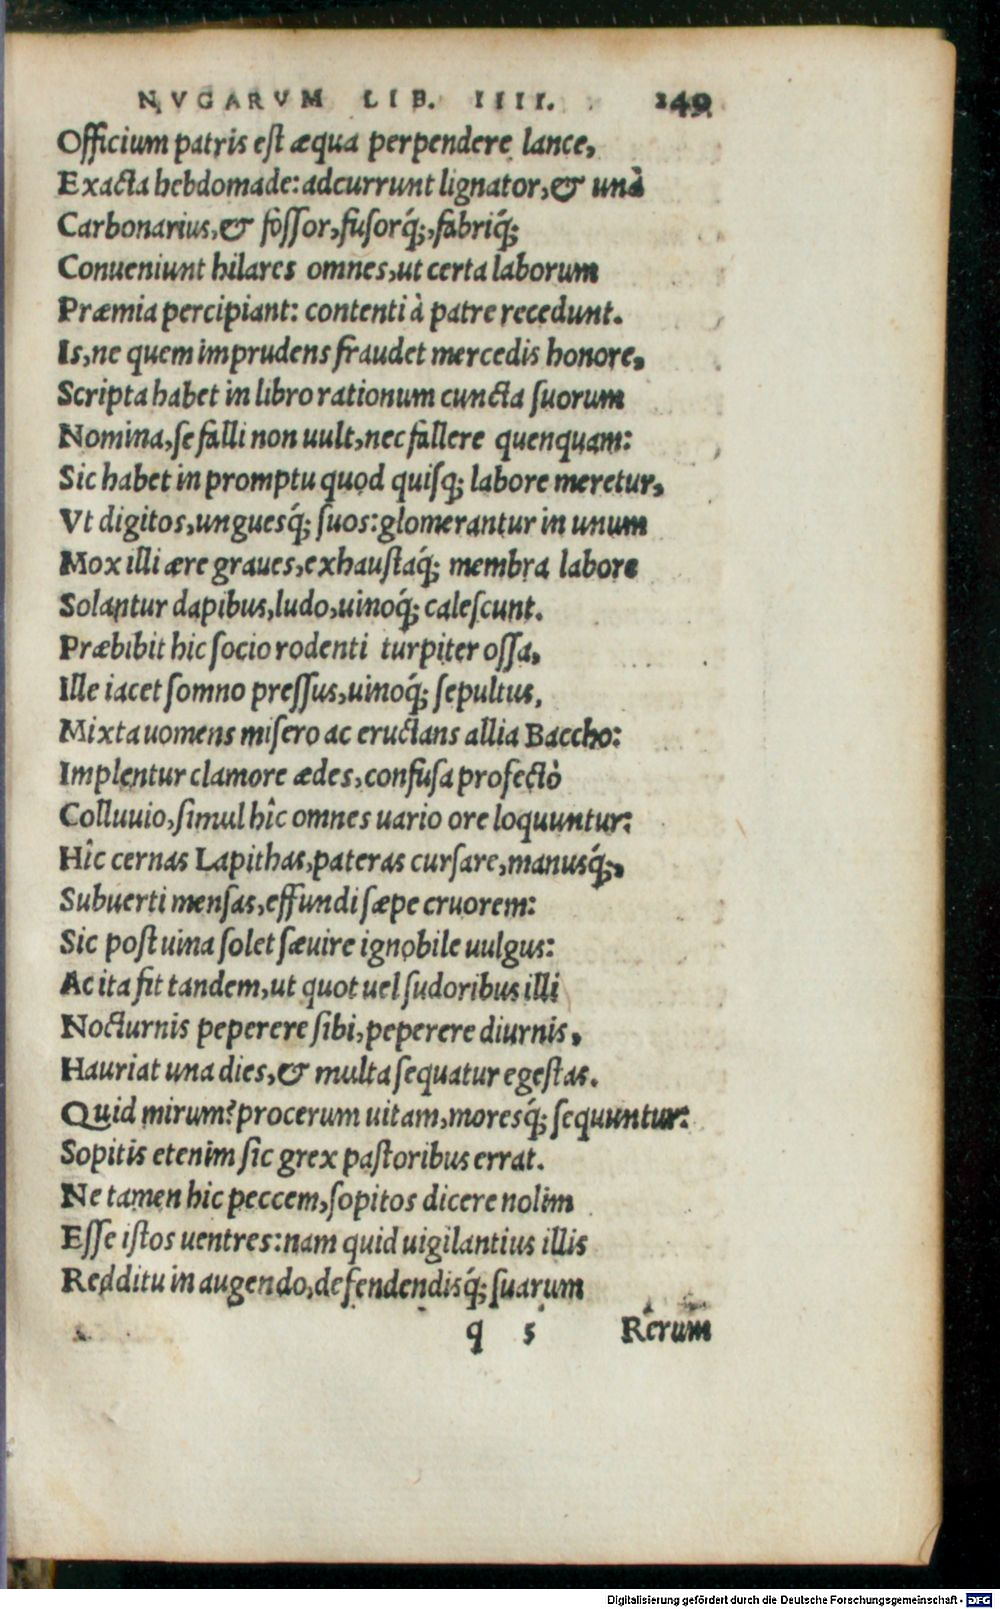 NVGARVM LIB. IIII. 249
Officium patris est æqua perpendere lance,
Exacta hebdomade: adcurrunt lignator, & unà
Carbonarius, & fossor, fusorq́;, fabriq́;
Conueniunt hilares omnes, ut certa laborum
Præmia percipiant: contenti à patre recedunt.
Is, ne quem imprudens fraudet mercedis honore,
Scripta habet in libro rationum cuncta suorum
Nomina, se falli non uult, nec fallere quenquam:
Sic habet in promptu quod quisq; labore meretur,
Vt digitos, unguesq́; suos: glomerantur in unum
Mox illi ære graues, exhaustaq́; membra labore
Solantur dapibus, ludo, uinoq́; calescunt.
Præbibit hic socio rodenti turpiter ossa,
Ille iacet somno pressus, uinoq́; sepultus,
Mixta uomens misero ac eructans allia Baccho:
Implentur clamore ædes, confusa profectò
Colluuio, simul hîc omnes uario ore loquuntur:
Hîc cernas Lapithas, pateras cursare, manusq́;,
Subuerti mensas, effundi sæpe cruorem:
Sic post uina solet sæuire ignobile uulgus:
Ac ita fit tandem, ut quot uel sudoribus illi
Nocturnis peperere sibi, peperere diurnis,
Hauriat una dies, & multa sequatur egestas.
Quid mirum? procerum uitam, moresq́; sequuntur:
Sopitis etenim sic grex pastoribus errat.
Ne tamen hic peccem, sopitos dicere nolim
Esse istos uentres: nam quid uigilantius illis
Redditu in augendo, defendendisq́; suarum
q 5 Rerum
Digitalisierung gefördert durch die Deutsche Forschungsgemeinschaft - DFG